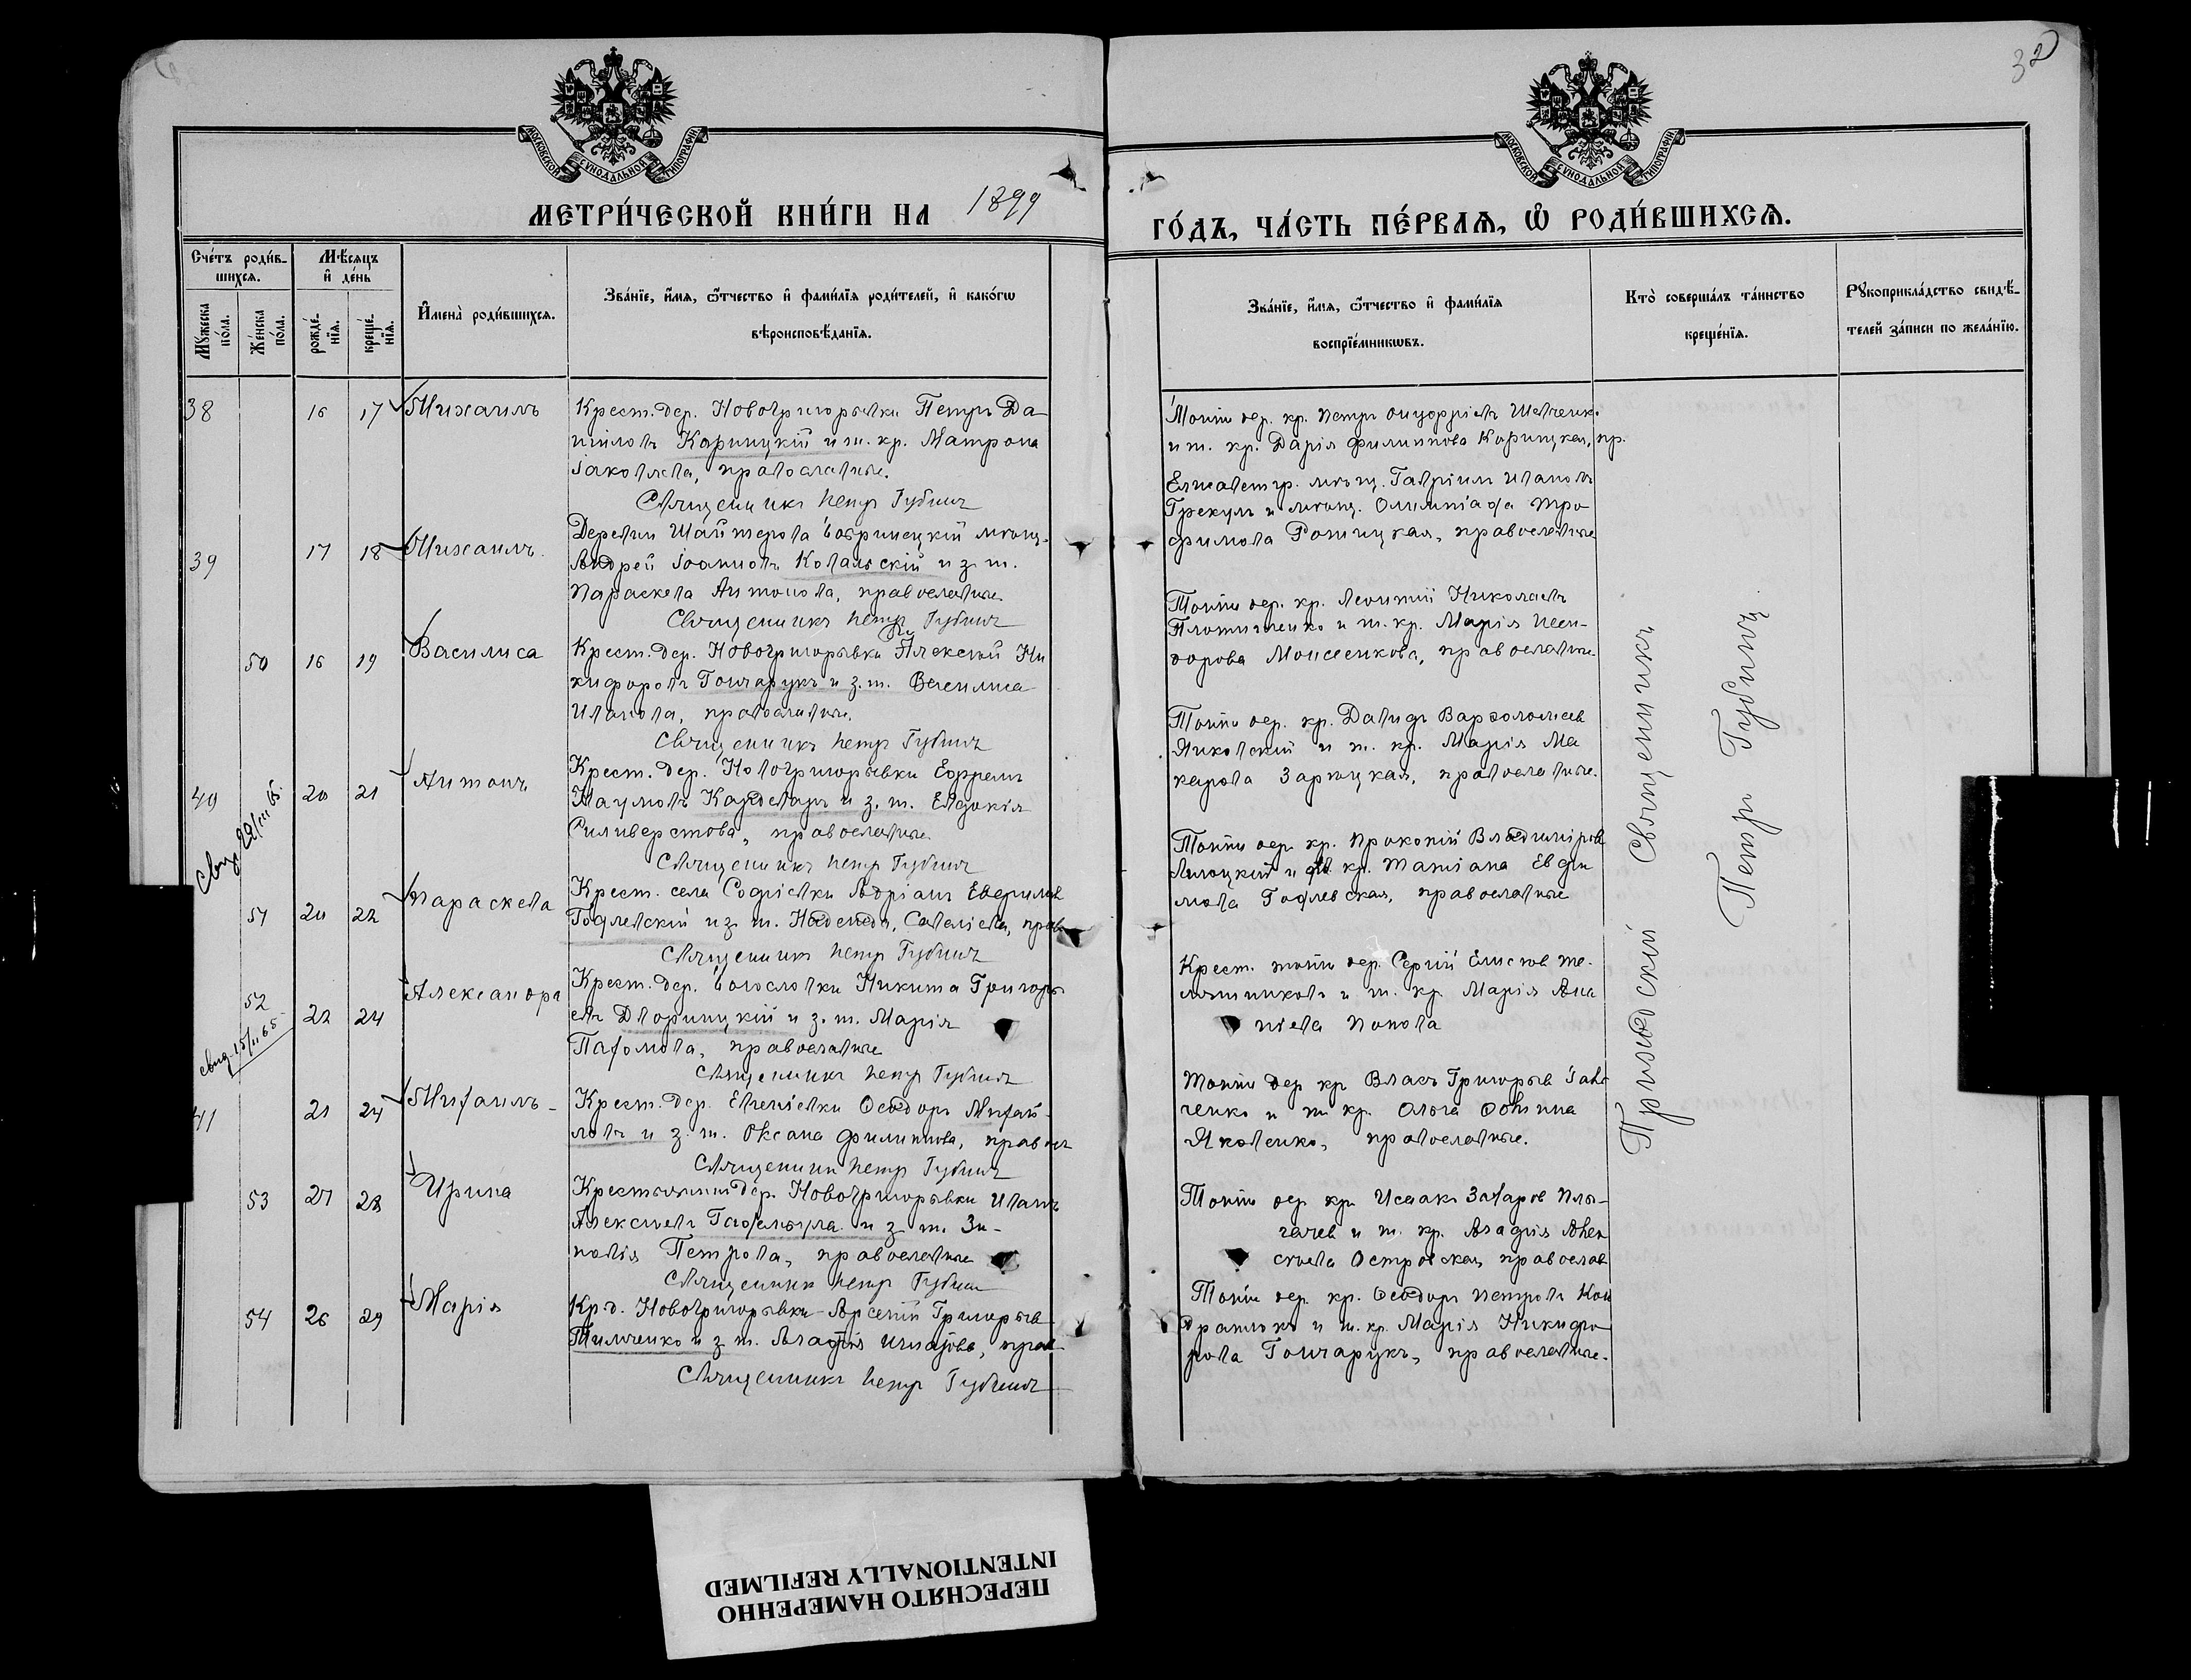 32
МОСКОВСКОЙ СУНОДАЛЬНОЙ ТИПОГРАФІИ
МОСКОВСКОЙ СУНОДАЛЬНОЙ ТИПОГРАФІИ
МЕТРИ́ЧЕСКОЙ КНИ́ГИ НА 1899
ГО́ДЪ, ЧА́СТЬ ПЕ́РВАЯ, Ѡ҆ РОДИ́ВШИХСЯ.
Сче́тъ роди́в-
шихся.
Мꙋ́жеска по́ла.
Же́нска по́ла.
Мѣ́сяцъ
и҆ де́нь
рожде́-
нїя.
креще́-
нїя.
И҆мена̀ роди́вшихся.
Зва́нїе, и҆́мя, ѻ҆́тчество и҆ фами́лїя роди́телей, и҆ како́гѡ
вѣроисповѣ́данїя.
Зва́нїе, и҆́мя, ѻ҆́тчество и҆ фами́лїя
воспрїе́мникѡвъ.
Кто̀ соверша́лъ та́инство
креще́нїя.
Рꙋкоприкла́дство свидѣ́-
телей за́писи по жела́нїю.
38 16 17 Михаилъ
Крест. дер. Новогригорьевки Петръ Да-
ниловъ Корницкій и ж. кр. Матрона
Іаковлева, православные.
Священникъ Петр Губинъ
Той же дер. кр. Петръ Онуфріевъ Шевченко
и ж. кр. Дарія Филиппова Корницкая, пр.
39 17 18 Михаилъ
Деревни Бобринецкій мѣщ.
Андрей Іоанновъ Ковальскій и з. ж.
Параскева Антонова, православные
Священникъ Петр Губинъ
Елисаветгр. мѣщ. Гавріилъ Ивановъ
Грекулъ и мѣщ. Олимпіада Тро
фимова православные
50 16 19 Василиса
Крест. дер. Новогригорьевки Алексій Ни
кифоровъ Гончарукъ и з. ж. Василиса
Иванова, православные.
Священникъ Петр Губинъ
Той же дер. кр. Леонтій Николаевъ
и ж. кр. Марія Иси-
дорова Моисеенкова, православные
40 20 21 Антонъ
свид 22/III 65.
Крест. дер. Новогригорьевки Ефремъ
Наумовъ и з. ж. Евдокія
Силиверстова, православные
Священникъ Петр Губинъ
Той же дер. кр. Давидъ Варѳоломеев
Янковскій и ж. кр. Марія Ма
карова Зарицкая, православные.
51 20 22 Параскева
Крест. села Софіевки Адріанъ
Гофлевскій и з. ж. Надежда, Савеліева, прав
Священникъ Петр Губинъ
Той же дер. кр. Прокопій Владиміров
и кр. Татіана Евфи
мова Гофлевская, православные
52 22 24 Александра
свид 15/II 65
Крест. дер. Богословки Никита Григорь
евъ Дворницкій и з. ж. Марія
Пахомова, православные
Священникъ Петр Губинъ
Крест. той же дер. Сергій
и ж. кр. Марія Ана
ніева Попова
41 21 24 Михаилъ
Крест. дер. Евгеніевки Ѳеодоръ Михай-
ловъ и з. ж. Оксана Филиппова, правосл
Священник Петр Губинъ
Той же дер кр Власъ Григорьев
ченко и ж кр. Ольга Ѳомина
Яковенко, православные.
53 27 28 Ирина
Крестьянинъ дер. Новогригорьевки Иванъ
Алексѣевъ и з ж. Зи-
новія Петрова, православные
Священникъ Петр Губин
Той же дер кр Исаакъ Захаров Плы-
гачев и ж. кр. Агафія Алек
сѣева Островская, православ
54 26 29 Марія
Кр. д. Новогригорьевки Арсеній Григорьев
Тимченко и з ж. Агафія прав
Священникъ Петр Губинъ
Той же дер. кр. Ѳеодоръ Петровъ Кон
дратюкъ и ж. кр. Марія Никифо
рова Гончарукъ, православные.
Приходскій Священникъ
Петръ Губинъ
ПЕРЕСНЯТО НАМЕРЕННО
INTENTIONALLY REFILMED